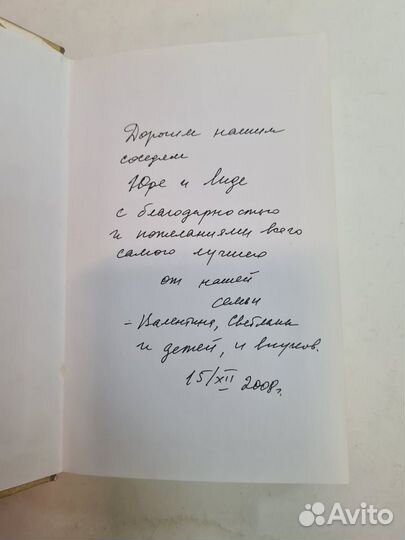 Дорогим нашим
соседям
Юре и Лиде
с благодарностью
и пожеланиями всего
самого лучшего
от нашей
семьи
- Валентина, Светланы
и детей, и внуков.
15/XII 2008г.
Avito